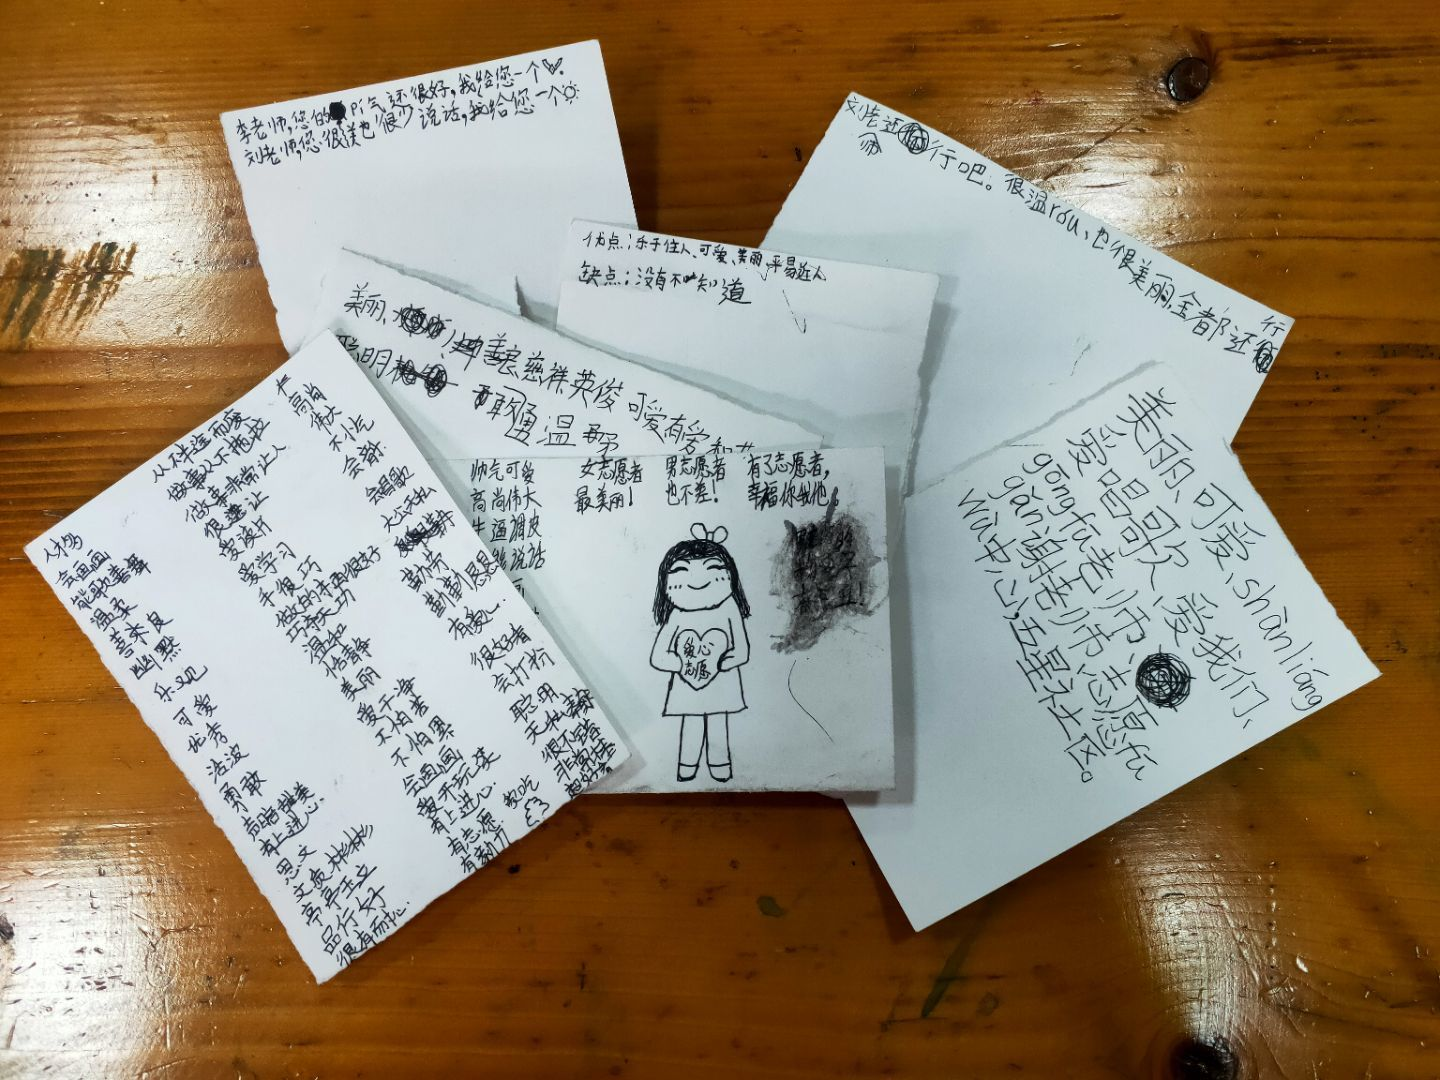 李老师,您的Pí气还很好,我给您一个
刘老师,您很美也很少说话,我给您一个
刘老师还行吧。很温róu、也很美丽,全都还行
优点:乐于住人、可爱、美丽、平易近人
缺点:没有不知道
美丽、善良慈祥英俊可爱有爱
聪明勇敢温
帅气可爱
高尚伟大
牛逼调皮
说话
女志愿者
最美丽!
男志愿者
也不差!
有了志愿者,
幸福你我他
爱心
志愿
美丽、可爱、shànliáng
爱唱歌、爱我们、
gōngfu老师、志愿fú
gǎn谢老师
wù中心,五星社区。
会画画
能歌善舞
温柔
善来良
幽默
乐观
可爱
优秀
活波
勇敢
有上进心
思文
文质彬彬
亭亭玉立
品行好
很有耐心
从不半途而废
做事从不拖拉
做事非常让人
很谦让
爱读书
爱学习
手很巧
做的东西很好
巧夺天功
温和
恬静
美丽
爱干净
不怕苦
不怕累
会画画
爱开玩笑
有上进心
有志愿
有毅力
高尚
伟大
不小气
会讲
会唱歌
大公无私
勤劳
勤勤恳恳
有爱心
很好看
会打扮
聪明
爱吃